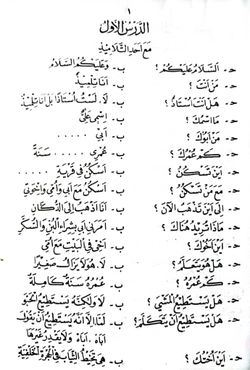 ١
الدَّرْسُ الأَوَّلُ
مَعَ أَحَدِ التَّلَامِيذِ
ح- اَلسَّلَامُ عَلَيْكُمْ؟ ب- وَعَلَيْكُمُ السَّلَامُ
ح- مَنْ أَنْتَ؟ ب- أَنَا تِلْمِيذٌ
ح- هَلْ أَنْتَ أُسْتَاذٌ؟ ب- لَا، لَسْتُ أُسْتَاذًا بَلْ أَنَا تِلْمِيذٌ
ح- مَا اسْمُكَ؟ ب- اِسْمِي عَلِيٌّ
ح- مَنْ أَبُوكَ؟ ب- أَبِي .....
ح- كَمْ عُمْرُكَ؟ ب- عُمْرِي .... سَنَةً
ح- أَيْنَ تَسْكُنُ؟ ب- أَسْكُنُ فِي قَرْيَةِ ......
ح- مَعَ مَنْ تَسْكُنُ؟ ب- أَسْكُنُ مَعَ أَبِي وَأُمِّي وَإِخْوَتِي
ح- إِلَى أَيْنَ تَذْهَبُ الْآنَ؟ ب- أَنَا ذَاهِبٌ إِلَى الدُّكَّانِ
ح- مَاذَا تُرِيدُ هُنَاكَ؟ ب- أَمَرَنِي أَبِي بِشِرَاءِ الْبُنِّ وَالسُّكَّرِ
ح- أَيْنَ أَخُوكَ؟ ب- أَخِي فِي الْبَيْتِ مَعَ أُمِّي
ح- هَلْ هُوَ يَتَعَلَّمُ؟ ب- لَا، هُوَ لَا يَزَالُ صَغِيرًا
ح- كَمْ عُمْرُهُ؟ ب- عُمْرُهُ سَنَةٌ كَامِلَةٌ
ح- هَلْ يَسْتَطِيعُ الْمَشْيَ؟ ب- لَا وَلَكِنَّهُ يَسْتَطِيعُ الْحَبْوَ
ح- هَلْ يَسْتَطِيعُ أَنْ يَتَكَلَّمَ؟ ب- لَا، إِلَّا أَنَّهُ يَسْتَطِيعُ أَنْ يَقُولَ
أَبَاهْ، أَبَاهْ، وَلَا يَقْدِرُ غَيْرَهَا
ح- أَيْنَ أُخْتُكَ؟ ب- هِيَ تَخِيطُ الثِّيَابَ فِي الْحُجْرَةِ الْخَلْفِيَّةِ